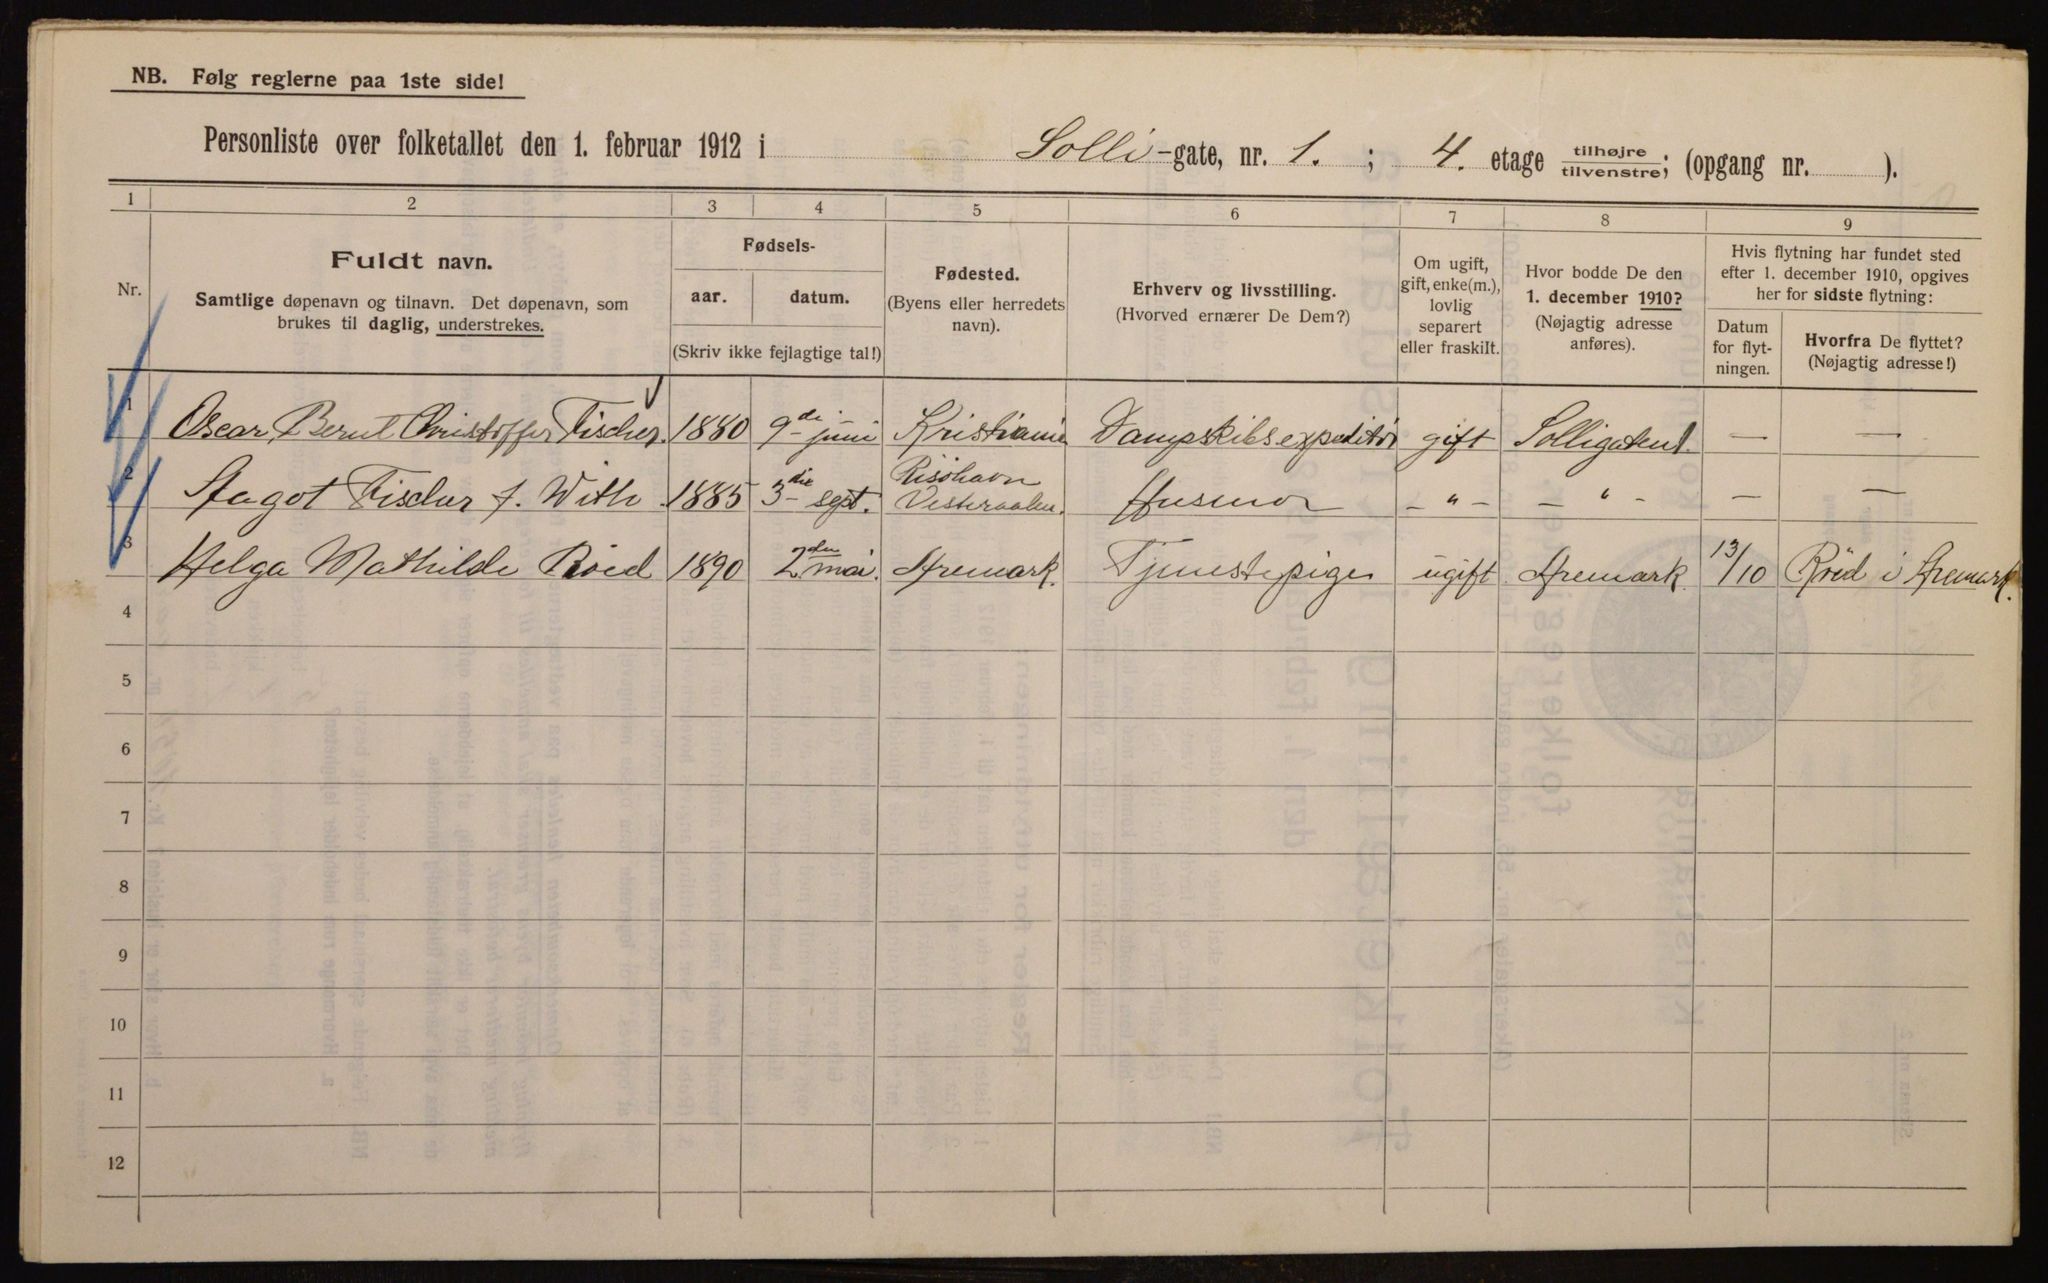 NB. Følg reglerne paa 1ste side!
Personliste over folketallet den 1. februar 1912 i Solli-gate, nr. 1. ; 4. etage tilhøjre/tilvenstre; (opgang nr. ).
1 2 3 4 5 6 7 8 9
Nr.
Fuldt navn.
Samtlige døpenavn og tilnavn. Det døpenavn, som
brukes til daglig, understrekes.
Fødsels-
aar. datum.
(Skriv ikke fejlagtige tal!)
Fødested.
(Byens eller herredets
navn).
Erhverv og livsstilling.
(Hvorved ernærer De Dem?)
Om ugift,
gift, enke(m.),
lovlig
separert
eller fraskilt.
Hvor bodde De den
1. december 1910?
(Nøjagtig adresse
anføres).
Hvis flytning har fundet sted
efter 1. december 1910, opgives
her for sidste flytning:
Datum
for flyt-
ningen.
Hvorfra De flyttet?
(Nøjagtig adresse!)
1 Oscar Bernt Christoffer Fischer. 1880 9de juni Kristiania Dampskibsexpeditør gift Solligaten 1. — —
2 Aagot Fischer f. With. 1885 3die sept. Risøhavn Vesteraalen. Husmor — " — — " — — —
3 Helga Mathilde Røed 1890 2den mai. Aremark. Tjenestepige ugift Aremark. 13/10 Röed i Aremark.
4
5
6
7
8
9
10
11
12